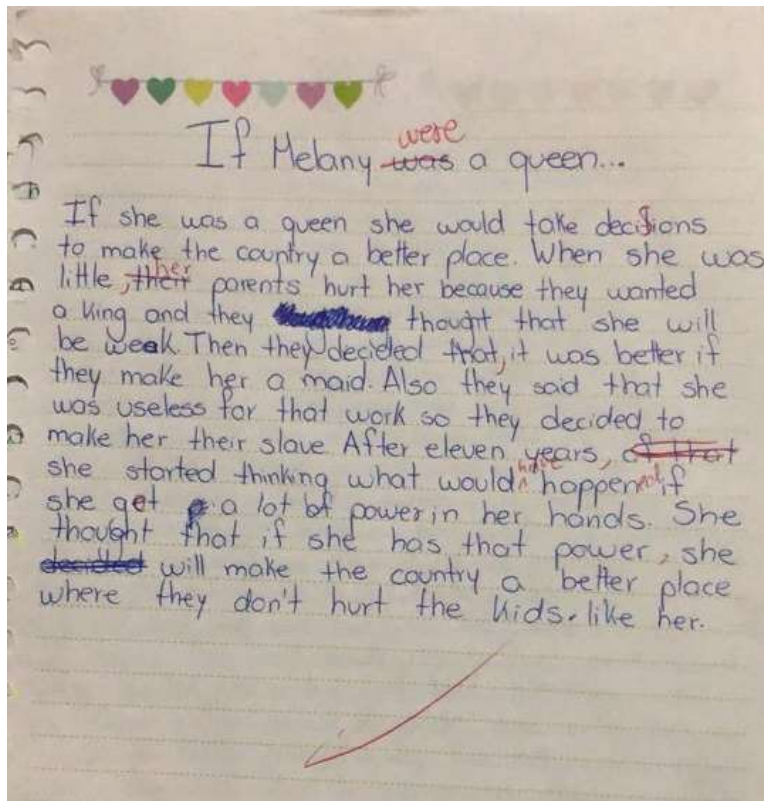 were
If Melany was a queen...
If she was a queen she would take decisions
to make the country a better place. When she was
her
little, their parents hurt her because they wanted
a King and they thought that she will
be weak. Then they decided that, it was better if
they make her a maid. Also they said that she
was useless for that work so they decided to
make her their slave After eleven years, of that
have
she started thinking what would happened if
she get a lot of power, in her hands. She
thought that if she has that power, she
decided will make the country a better place
where they don't hurt the kids. like her.